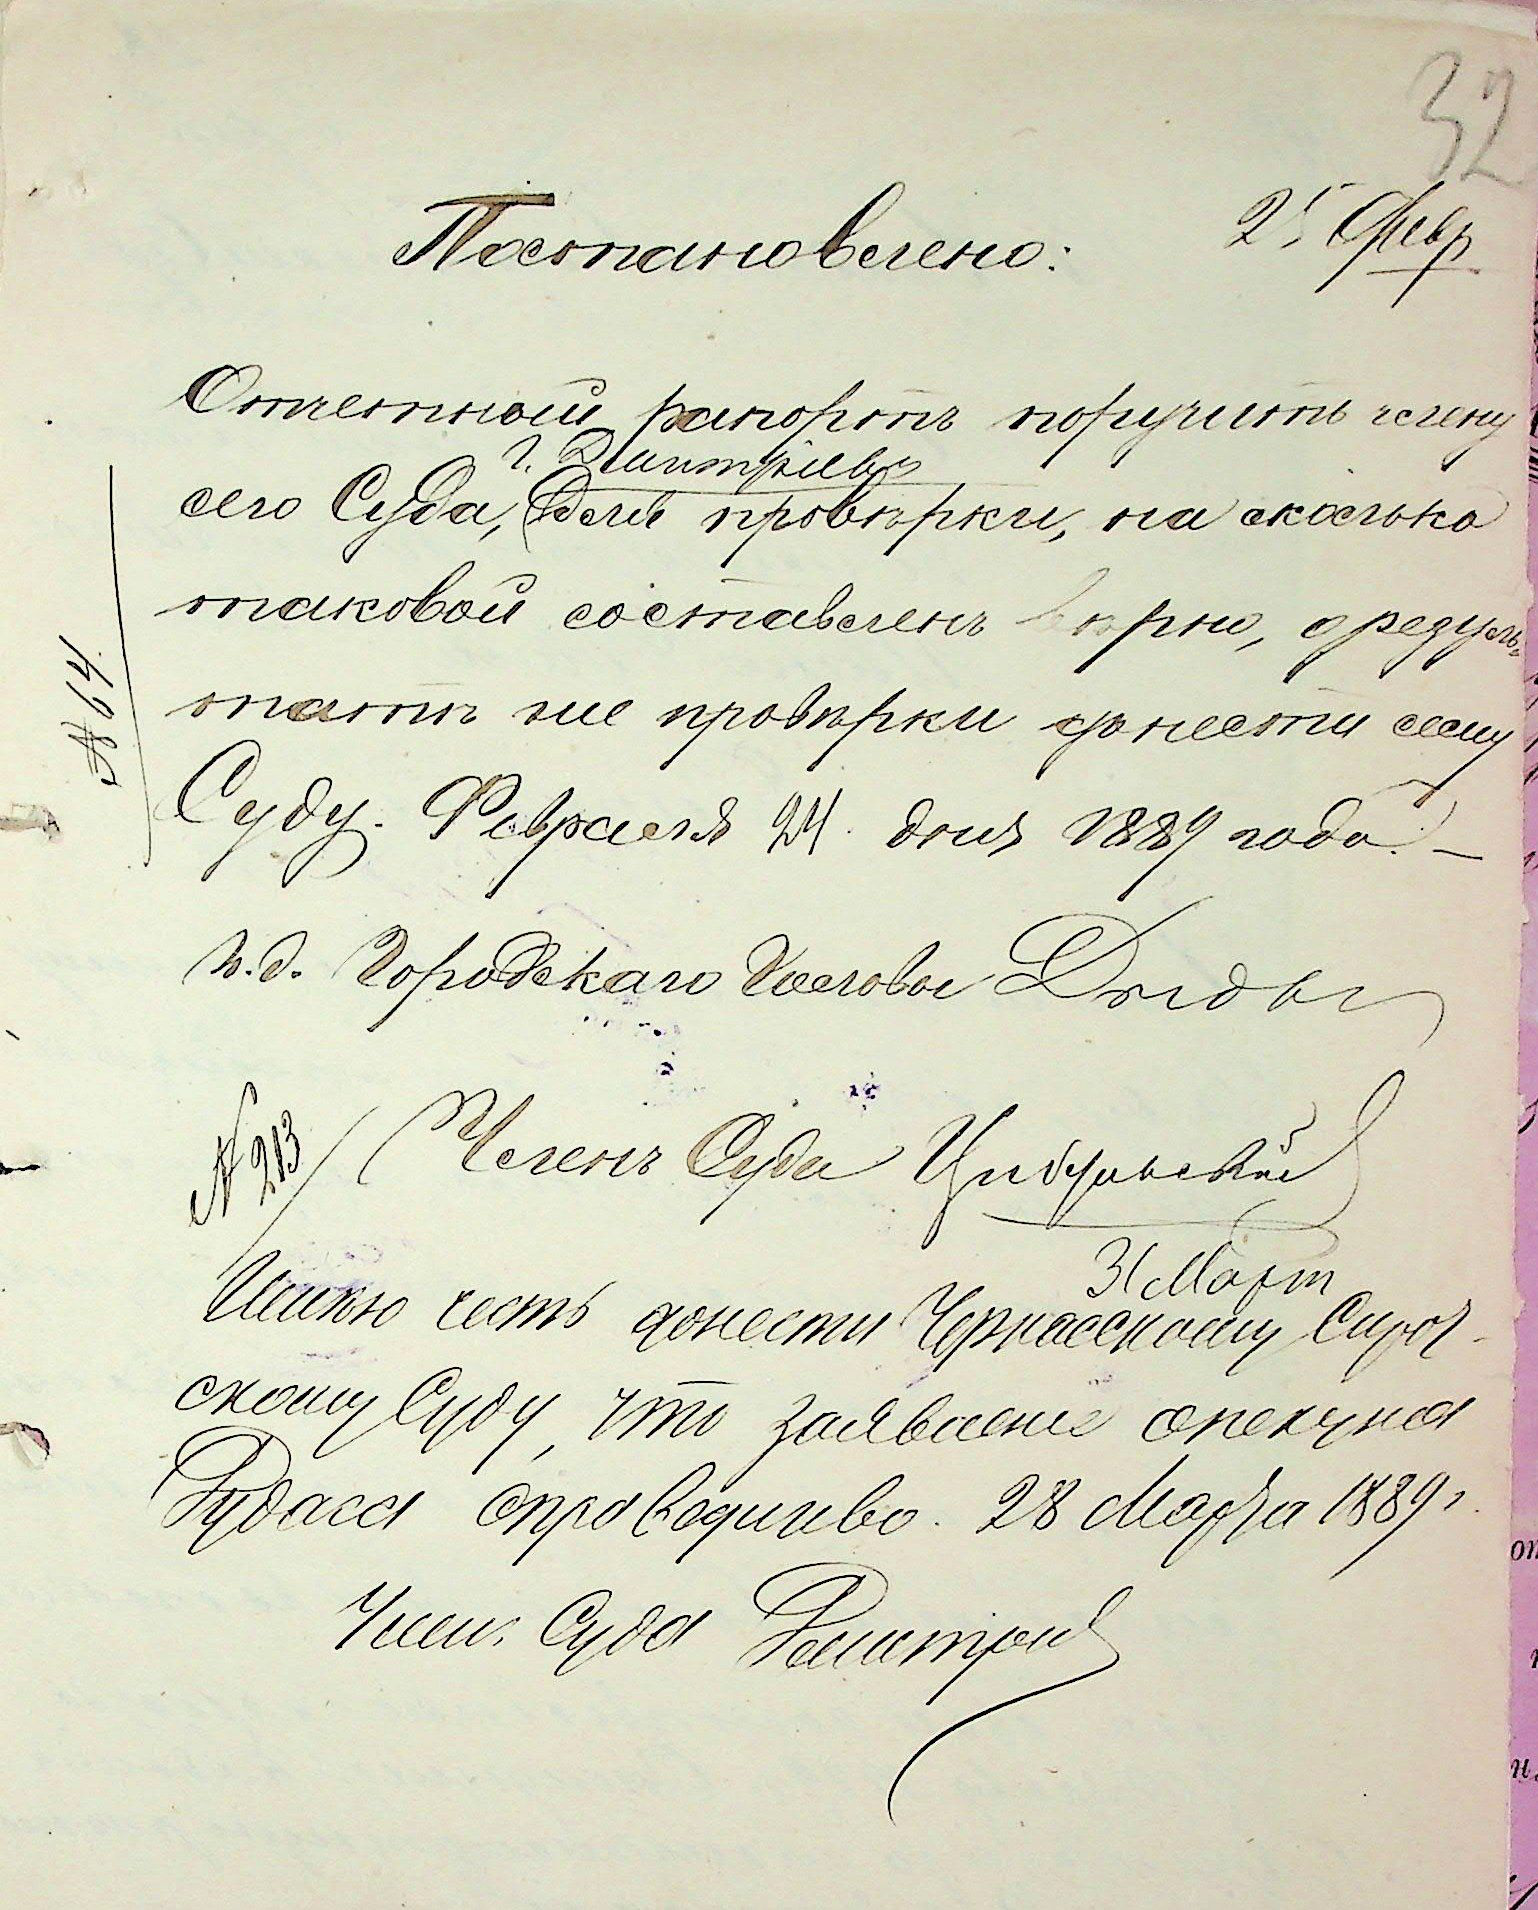 32
25 Февр
Постановлено:
Отчетный рапортъ поручить члену
г. Дмитріеву
сего Суда, для провѣрки, на сколько
таковой составленъ вѣрно, о резуль-
татѣ же провѣрки донести сему
Суду. Февраля 24 дня 1889 года. –
№ 64.
и.д. Городскаго Головы
№ 213
Членъ Суда Цибульскій
31 Март
Имѣю честь донести Черкасскому Сирот-
скому Суду, что заявление опекуна
Рудаса справедливо. 28 Марта 1889 г.
Член. Суда Дмитріев